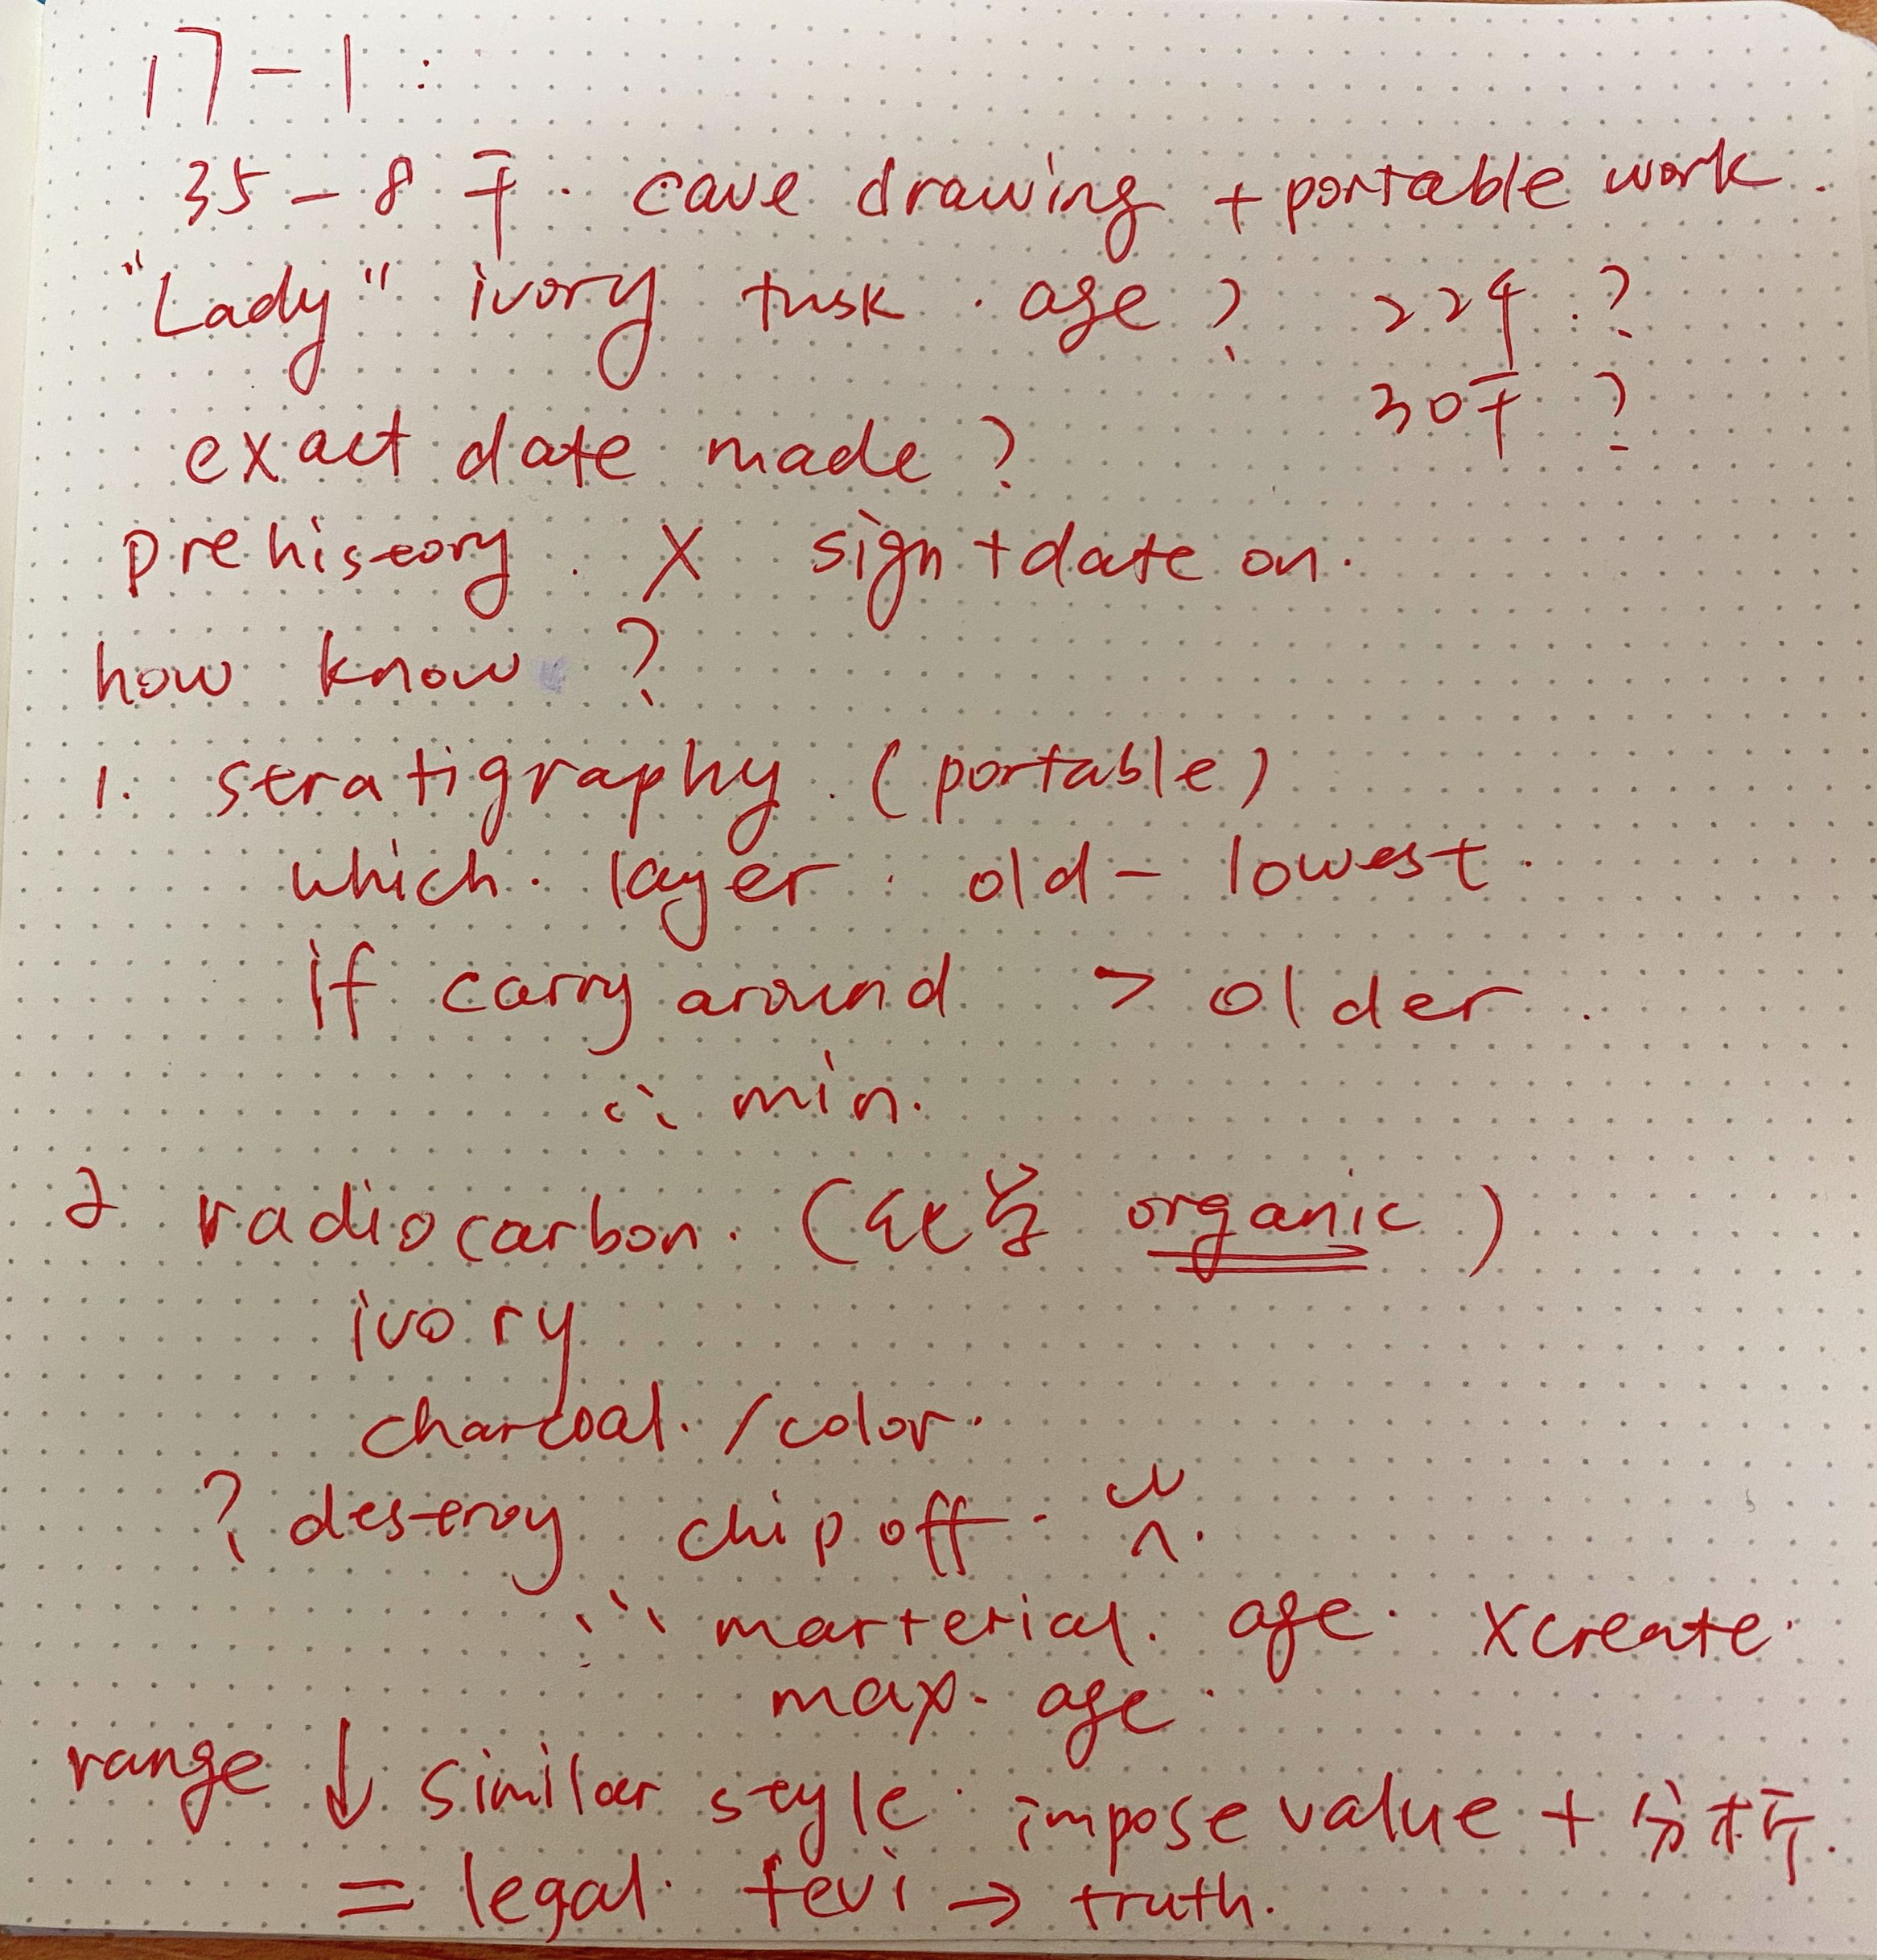 17-1:
35-8千. cave drawing + portable work.
"Lady" ivory tusk. age? 22千.?
30千?
exact date made?
prehistory. X sign + date on.
how know?
1. stratigraphy. (portable)
which. layer. old - lowest.
if carry around > older.
∴ min.
2 radiocarbon. (化学 organic)
ivory
charcoal. /color.
? destroy chip off.
∵ marterial. age. X create.
max. age.
range ↓ similar style. impose value + 分析.
= legal. tevi → truth.